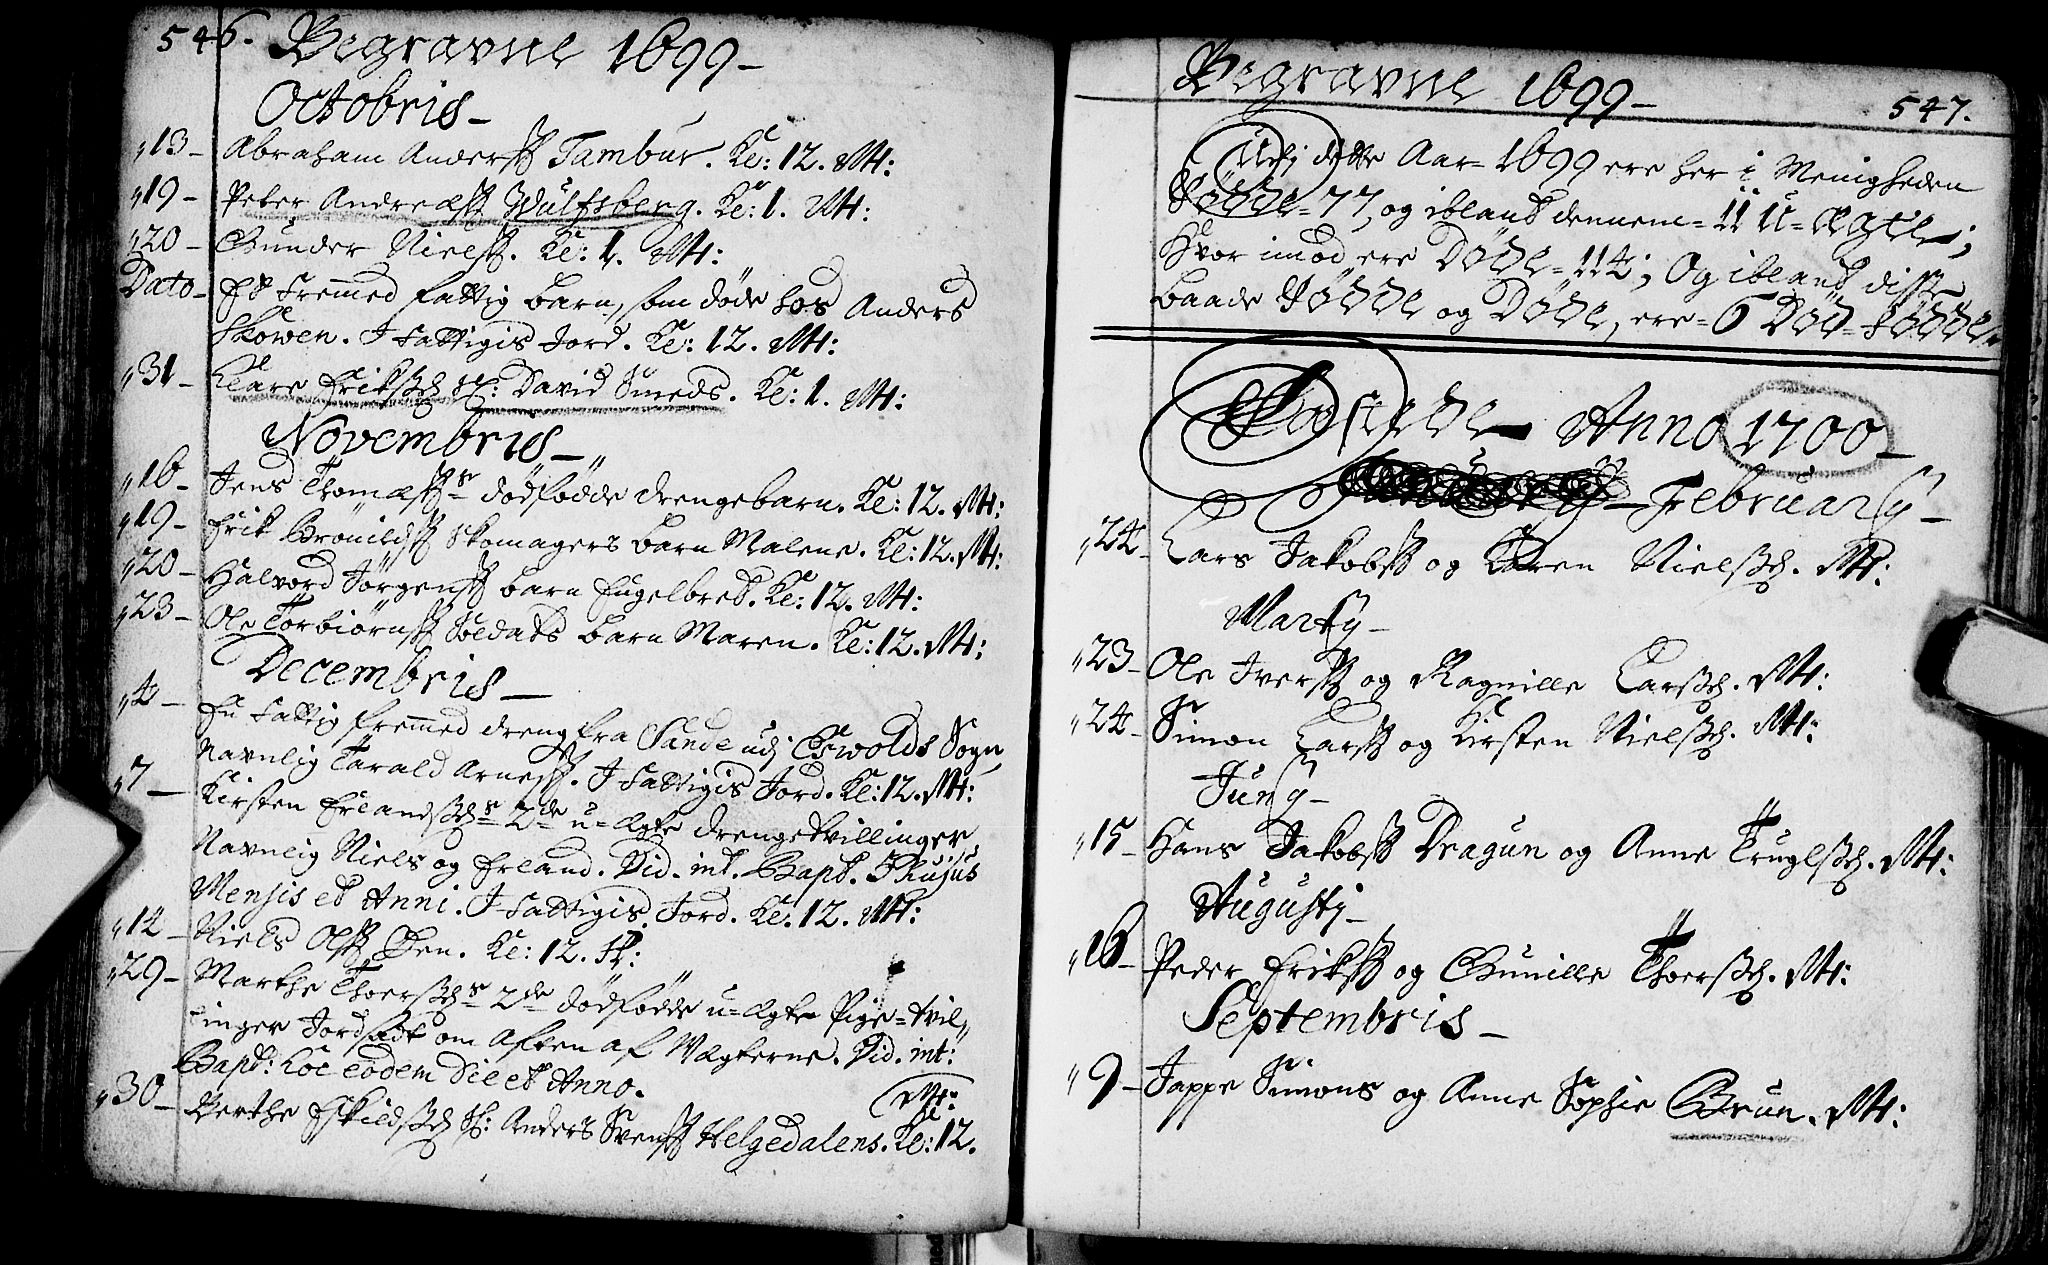 546. Begravne 1699 –
Octobris –
„13 – Abraham Anderss Tambur. Kl: 12. M:
„19 – Peter Andreæss Wulfsberg. Kl: 1. M:
„20 – Gunder Nielss. Kl: 1. M:
Dato – Et fremmed fattig barn, som døde hos Anders
Skowen. I Fattigis Jord. Kl: 12. M:
„31 – Clare Eriksd: David Smeds. Kl: 1. M:
Novembris –
„16 – Jens Thomæss dødfødde drengebarn. Kl: 12. M:
„19 – Erik Brønildss Skomagers barn Malene. Kl: 12. M:
„20 – Halvord Jørgenss barn Engelbret. Kl: 12. M:
„23 – Ole Torbiørnss Soldats barn Maren. Kl: 12. M:
Decembris –
„4 – En fattig fremmed dreng fra Sande udj Sogn
Navnlig Tarald Arness. I Fattigis Jord. Kl: 12. M:
„7 – Kirsten Erlandsd 2de u-ægte drengetvillinger
Navnlig Niels og Erland. Vid. int. Bapt. hujus
Mensis et Anni. I Fattigis Jord. Kl. 12. M:
„14 – Niels Olss Kl: 12.
„29 – Marthe Thoersd 2de dødfødde u-ægte Pige-tvil-
linger Jordsadt om Aften af Vægterne. Vid. int:
Bapt: hoc eodem die et Anno.
M:
„30 – Berthe Eskildsd Anders Svenss Helgedalens. Kl: 12.
Begravne 1699 –
547.
Udj dette Aar = 1699 ere her i Menigheden
Fødde = 77, og iblant dennem = 11 u-Ægte;
Hvor imod ere Døde = 114; Og iblant disse
baade Fødde og Døde, ere = 6 Død-Fødde
Anno 1700 –
February –
„24 – Lars Jakobss og Karen Nielsd. M:
Marty –
„23 – Ole Iverss og Ragnille Larsd. M:
„24 – Simon Larss og Kirsten Nielsd. M:
Juny –
„15 – Hans Jakobss Dragun og Anne Truglsd. M:
Augusty –
„16 – Peder Erikss og Gunille Thoersd. M:
Septembris –
„9 – Jappe Simons og Anne Sophie Brun. M: